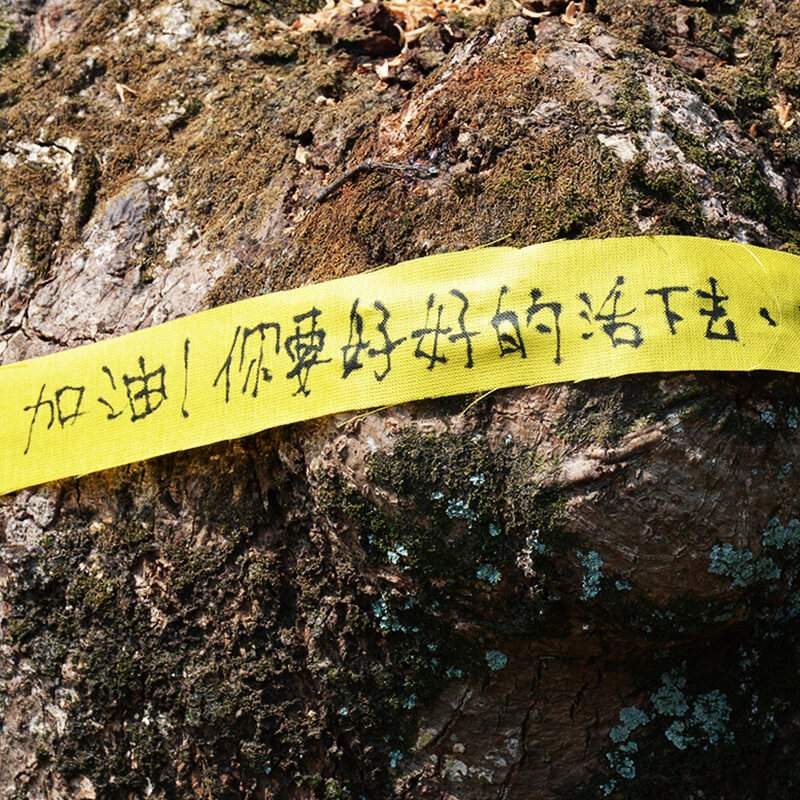 加油！你要好好的活下去、